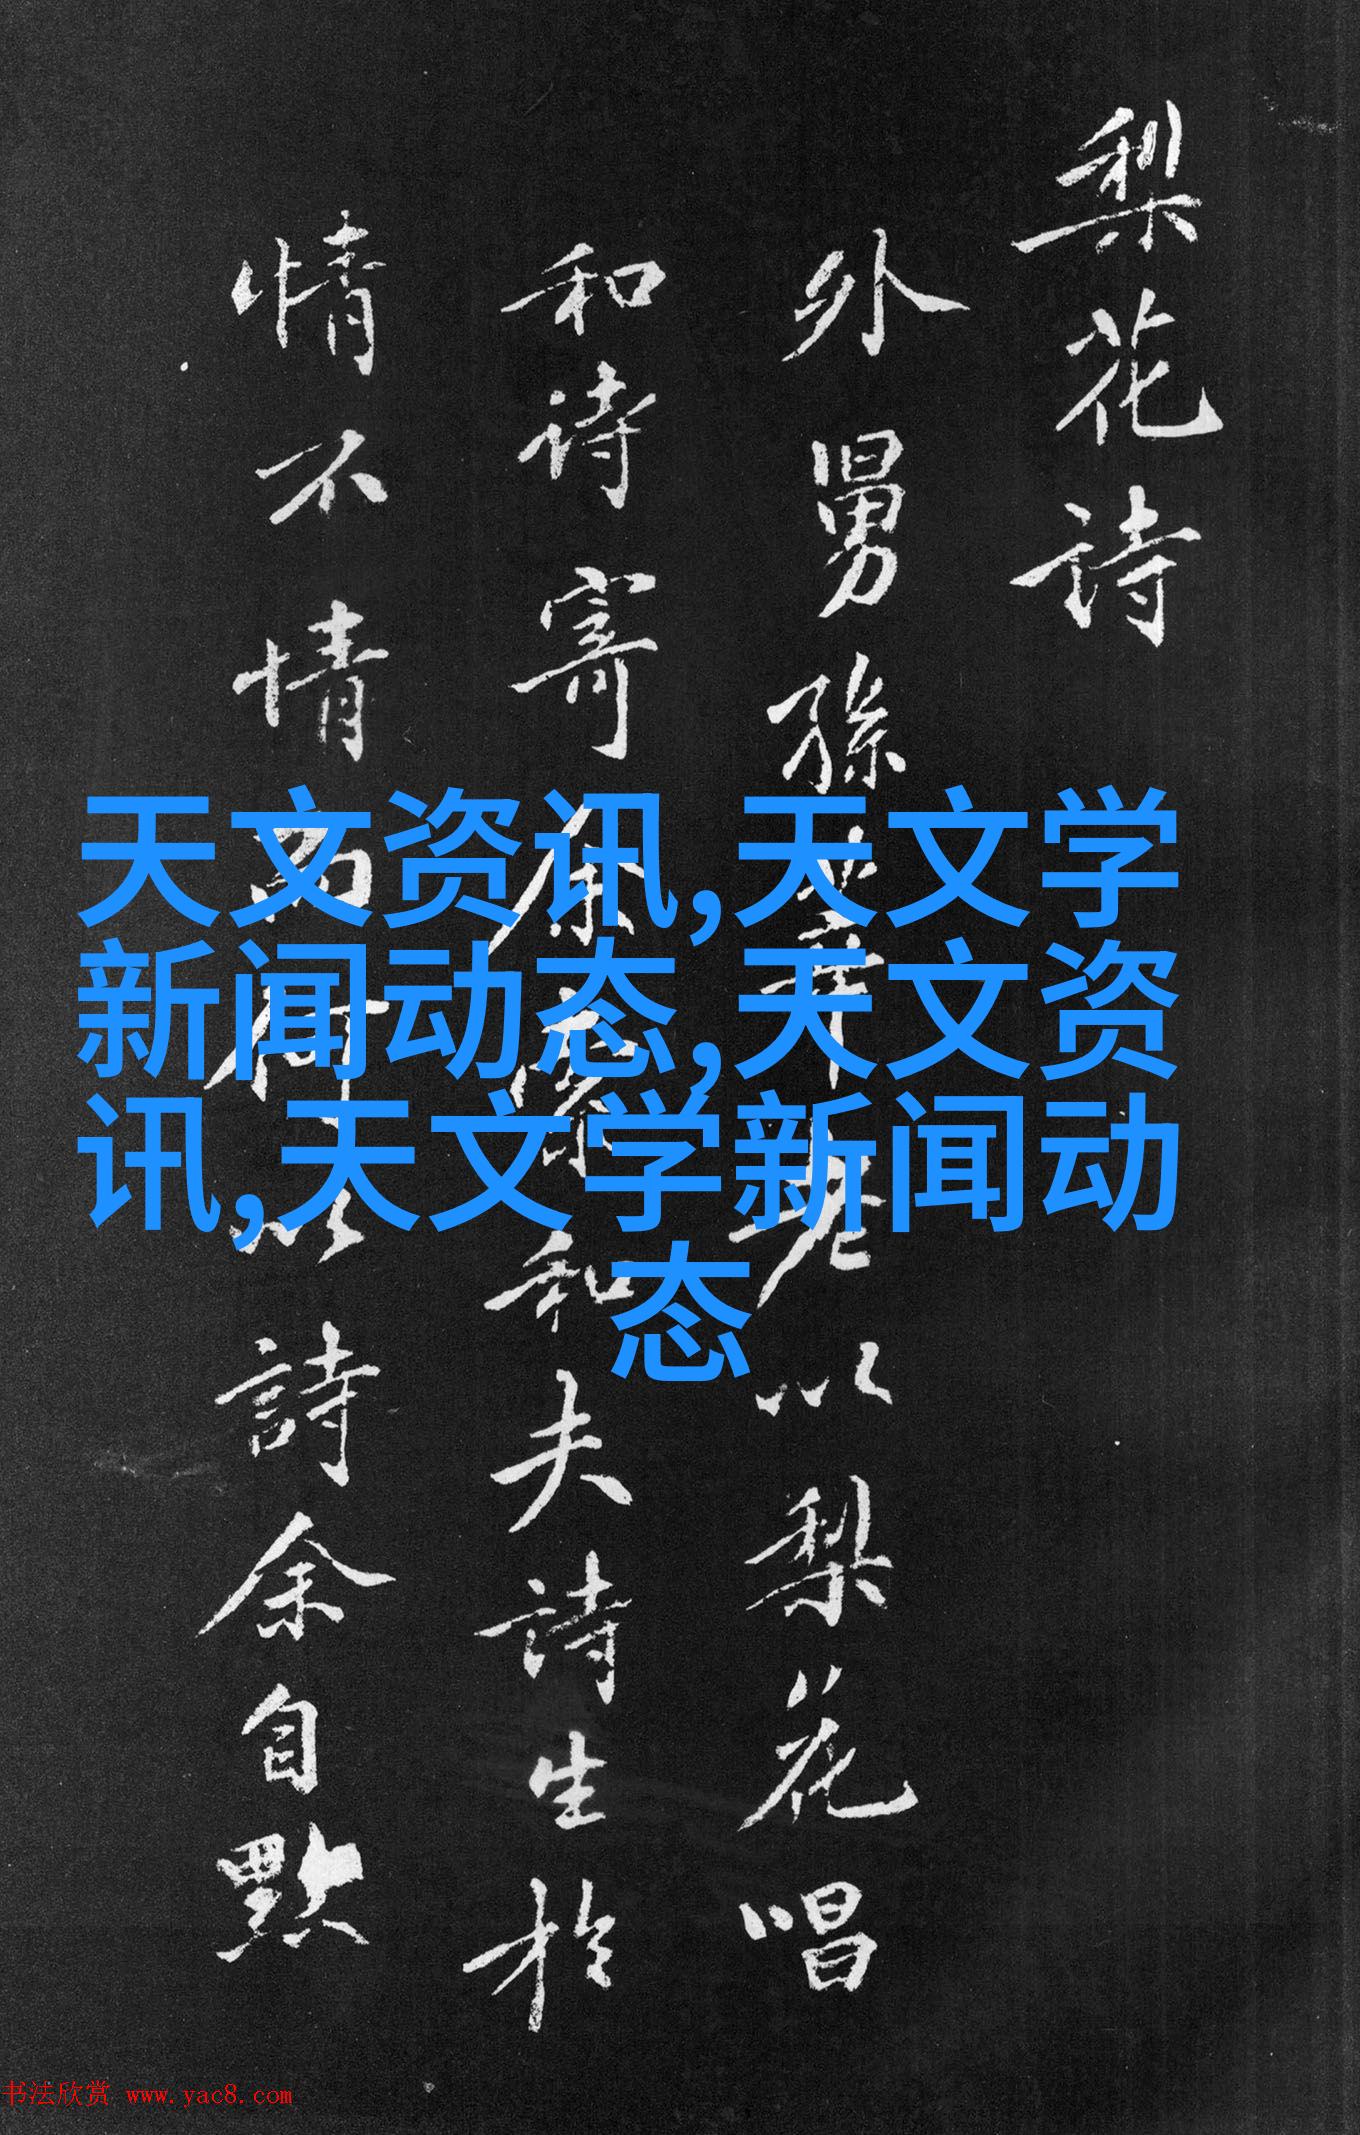 梨花詩
外舅孫莘老以梨花唱
和詩寄余和夫詩生於
情不情何以詩余自
天文资讯,天文学
新闻动态,天文资
讯,天文学新闻动
态
书法欣赏 www.yac8.com